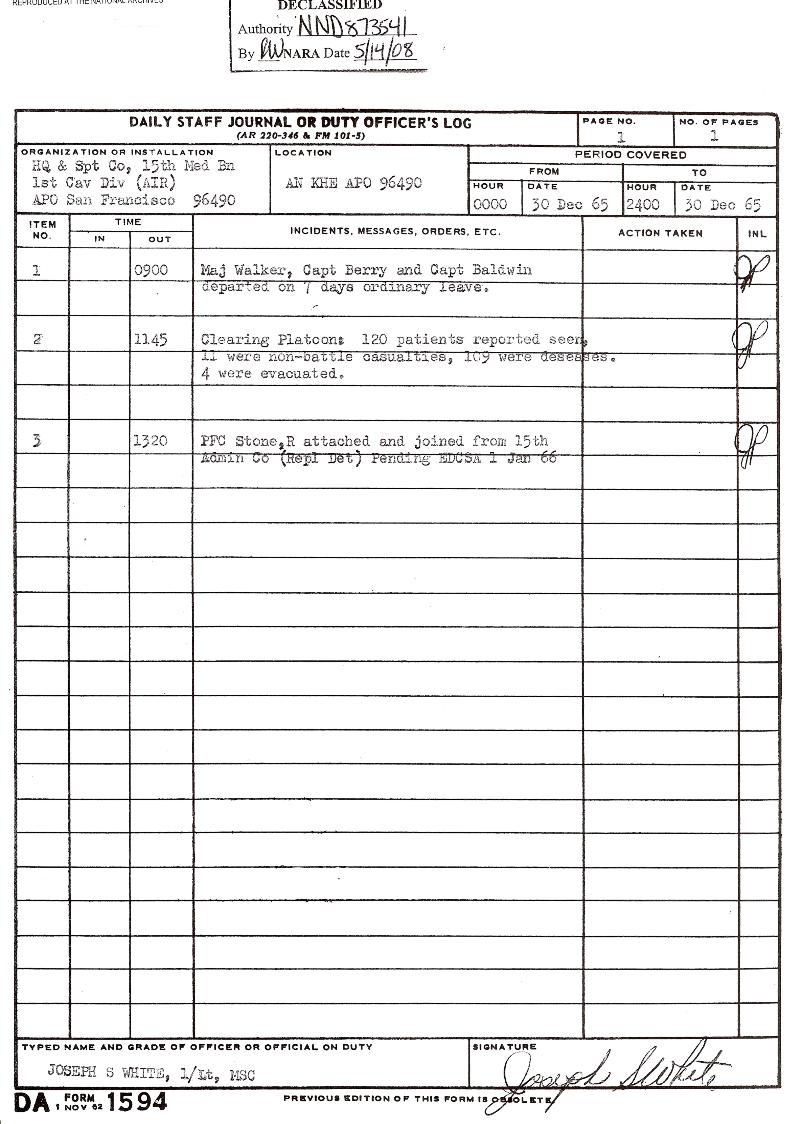 REPRODUCED AT THE NATIONAL ARCHIVES
DECLASSIFIED
Authority NND873541
By NARA Date 5/14/08
DAILY STAFF JOURNAL OR DUTY OFFICER'S LOG
(AR 220-346 & FM 101-5)
PAGE NO.
1
NO. OF PAGES
1
ORGANIZATION OR INSTALLATION
HQ & Spt Co, 15th Med Bn
1st Cav Div (AIR)
APO San Francisco 96490
LOCATION
AN KHE APO 96490
PERIOD COVERED
FROM TO
HOUR DATE HOUR DATE
0000 30 Dec 65 2400 30 Dec 65
ITEM NO. TIME INCIDENTS, MESSAGES, ORDERS, ETC. ACTION TAKEN INL
IN OUT
1 0900 Maj Walker, Capt Berry and Capt Baldwin
departed on 7 days ordinary leave.
2 1145 Clearing Platoon: 120 patients reported seen,
11 were non-battle casualties, 109 were deseases.
4 were evacuated.
3 1320 PFC Stone,R attached and joined from 15th
Admin Co (Repl Det) Pending EDCSA 1 Jan 66
TYPED NAME AND GRADE OF OFFICER OR OFFICIAL ON DUTY
JOSEPH S WHITE, 1/Lt, MSC
SIGNATURE
Joseph S White
DA FORM 1 NOV 62 1594 PREVIOUS EDITION OF THIS FORM IS OBSOLETE